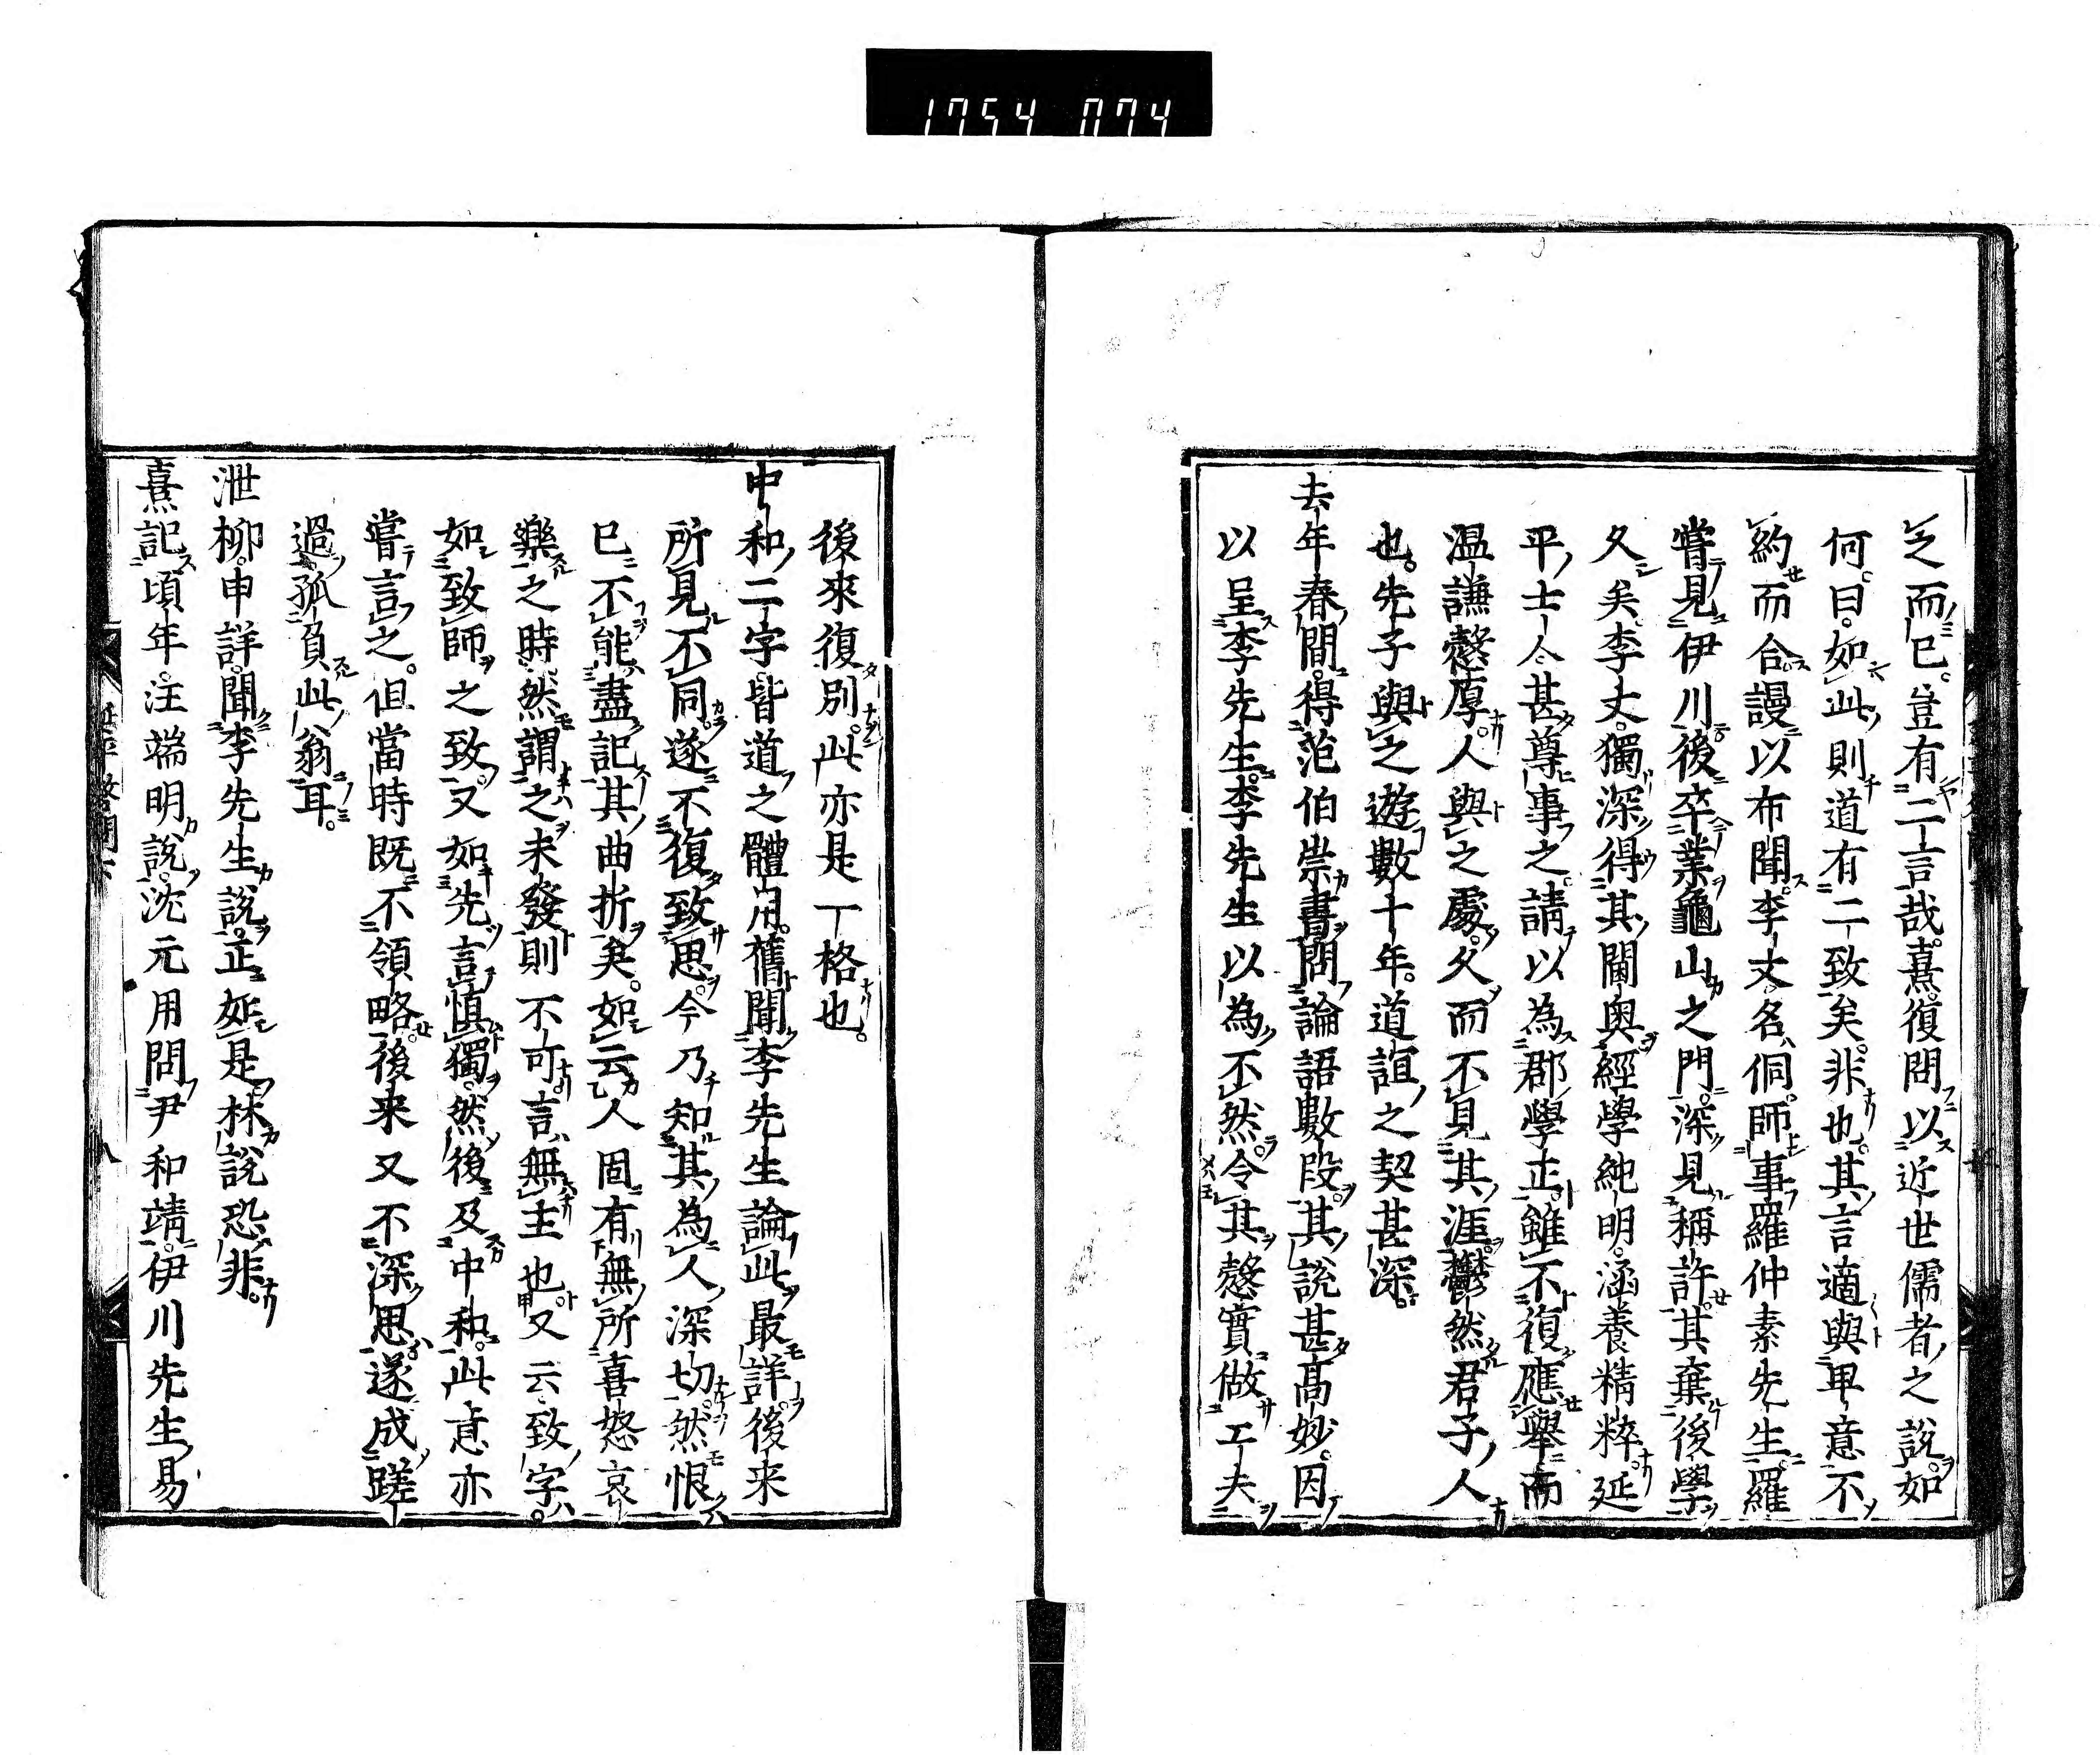 1754 074
之而已豈有二言哉熹復問以近世儒者之說如
何曰如此則道有二致矣非也其言適與卑意不
約而合謾以布聞李丈名侗師事羅仲素先生羅
嘗見伊川後卒業龜山之門深見稱許其棄後學
久矣李丈獨深得其閫奧經學純明涵養精粹延
平士人甚尊事之請以為郡學正雖不復應舉而
溫謙愨厚人與之處久而不見其涯鬱然君子人
也先子與之遊數十年道誼之契甚深
去年春間得范伯崇書問論語數段其說甚高妙因
以呈李先生李先生以為不然令其愨實做工夫
後來復別此亦是一格也
中和二字皆道之體用舊聞李先生論此最詳後来
所見不同遂不復致思今乃知其為人深切然恨
已不能盡記其曲折矣如云人固有無所喜怒哀
樂之時然謂之未發則不可言無主也又云致字
如致師之致又如先言慎獨然後及中和此意亦
嘗言之但當時既不領略後来又不深思遂成蹉
過孤負此翁耳
泄柳申詳聞李先生說正如是林說恐非
熹記頃年汪端明說沈元用問尹和靖伊川先生易
延平答問下
八